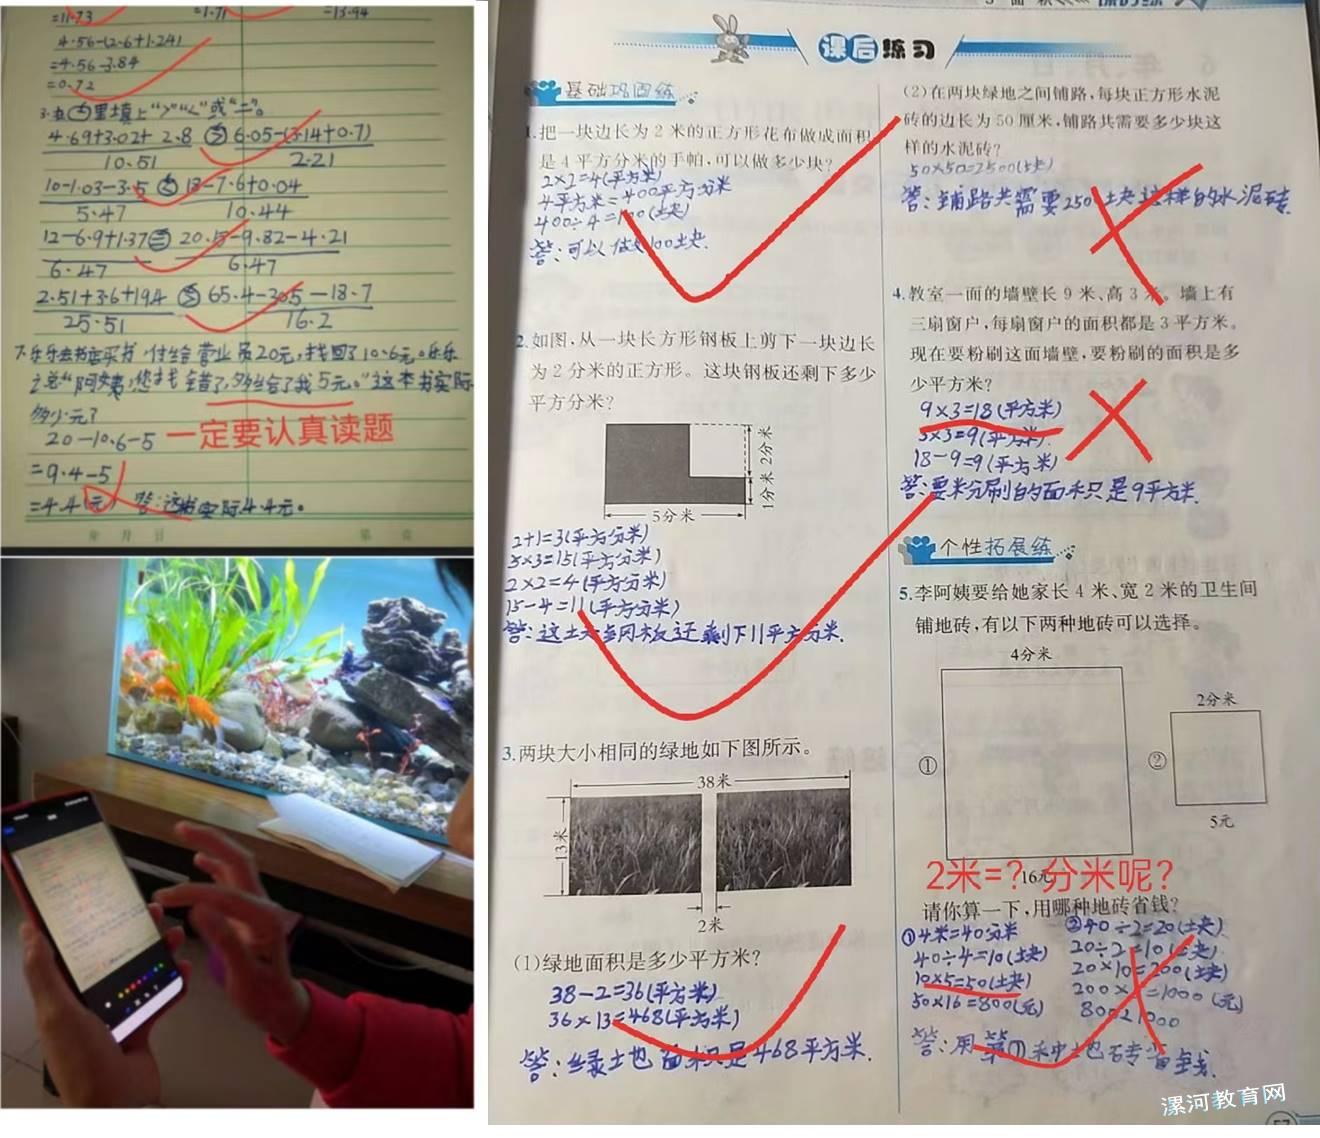 =11.73
=1.71
=13.94
4.56-(2.6+1.24)
=4.56-3.84
=0.72
3.在○里填上“>”“<”或“=”。
4.69+3.02+2.8 > 6.05-(3.14+0.7)
10.51 2.21
5.47 10.44
12-6.9+1.37 = 20.15-9.82-4.21
6.47 6.47
25.51 16.2
7.乐乐去书店买书,付给营业员20元,找回了10.6元。乐乐
说“阿姨,您找错了,多给了我5元。”这本书实际
多少元?
20-10.6-5
一定要认真读题
=9.4-5
=4.4(元) 答:这书实际4.4元。
课后练习
基础巩固练
1.把一块边长为2米的正方形花布做成面积
是4平方分米的手帕,可以做多少块?
2×2=4(平方米)
4平方米=400平方分米
400÷4=100(块)
答:可以做100块.
2.如图,从一块长方形钢板上剪下一块边长
为2分米的正方形。这块钢板还剩下多少
平方分米?
2分米
1分米
5分米
2+1=3(平方分米)
5×3=15(平方分米)
2×2=4(平方分米)
15-4=11(平方分米)
答:这块钢板还剩下11平方分米.
3.两块大小相同的绿地如下图所示。
38米
13米
2米
(1)绿地面积是多少平方米?
38-2=36(平方米)
36×13=468(平方米)
答:绿地面积是468平方米.
(2)在两块绿地之间铺路,每块正方形水泥
砖的边长为50厘米,铺路共需要多少块这
样的水泥砖?
50×50=2500(块)
答:铺路共需要250块这样的水泥砖.
4.教室一面的墙壁长9米、高3米。墙上有
三扇窗户,每扇窗户的面积都是3平方米。
现在要粉刷这面墙壁,要粉刷的面积是多
少平方米?
9×3=18(平方米)
3×3=9(平方米)
18-9=9(平方米)
答:要粉刷的面积是9平方米.
个性拓展练
5.李阿姨要给她家长4米、宽2米的卫生间
铺地砖,有以下两种地砖可以选择。
4分米
2分米
①
②
5元
16元
2米=?分米呢?
请你算一下,用哪种地砖省钱?
①4米=40分米 ②40÷2=20(块)
40÷4=10(块) 20÷2=10(块)
10×5=50(块) 20×10=200(块)
50×16=800(元) 200×5=1000(元)
800<1000
答:用第①种地砖省钱.
漯河教育网
57